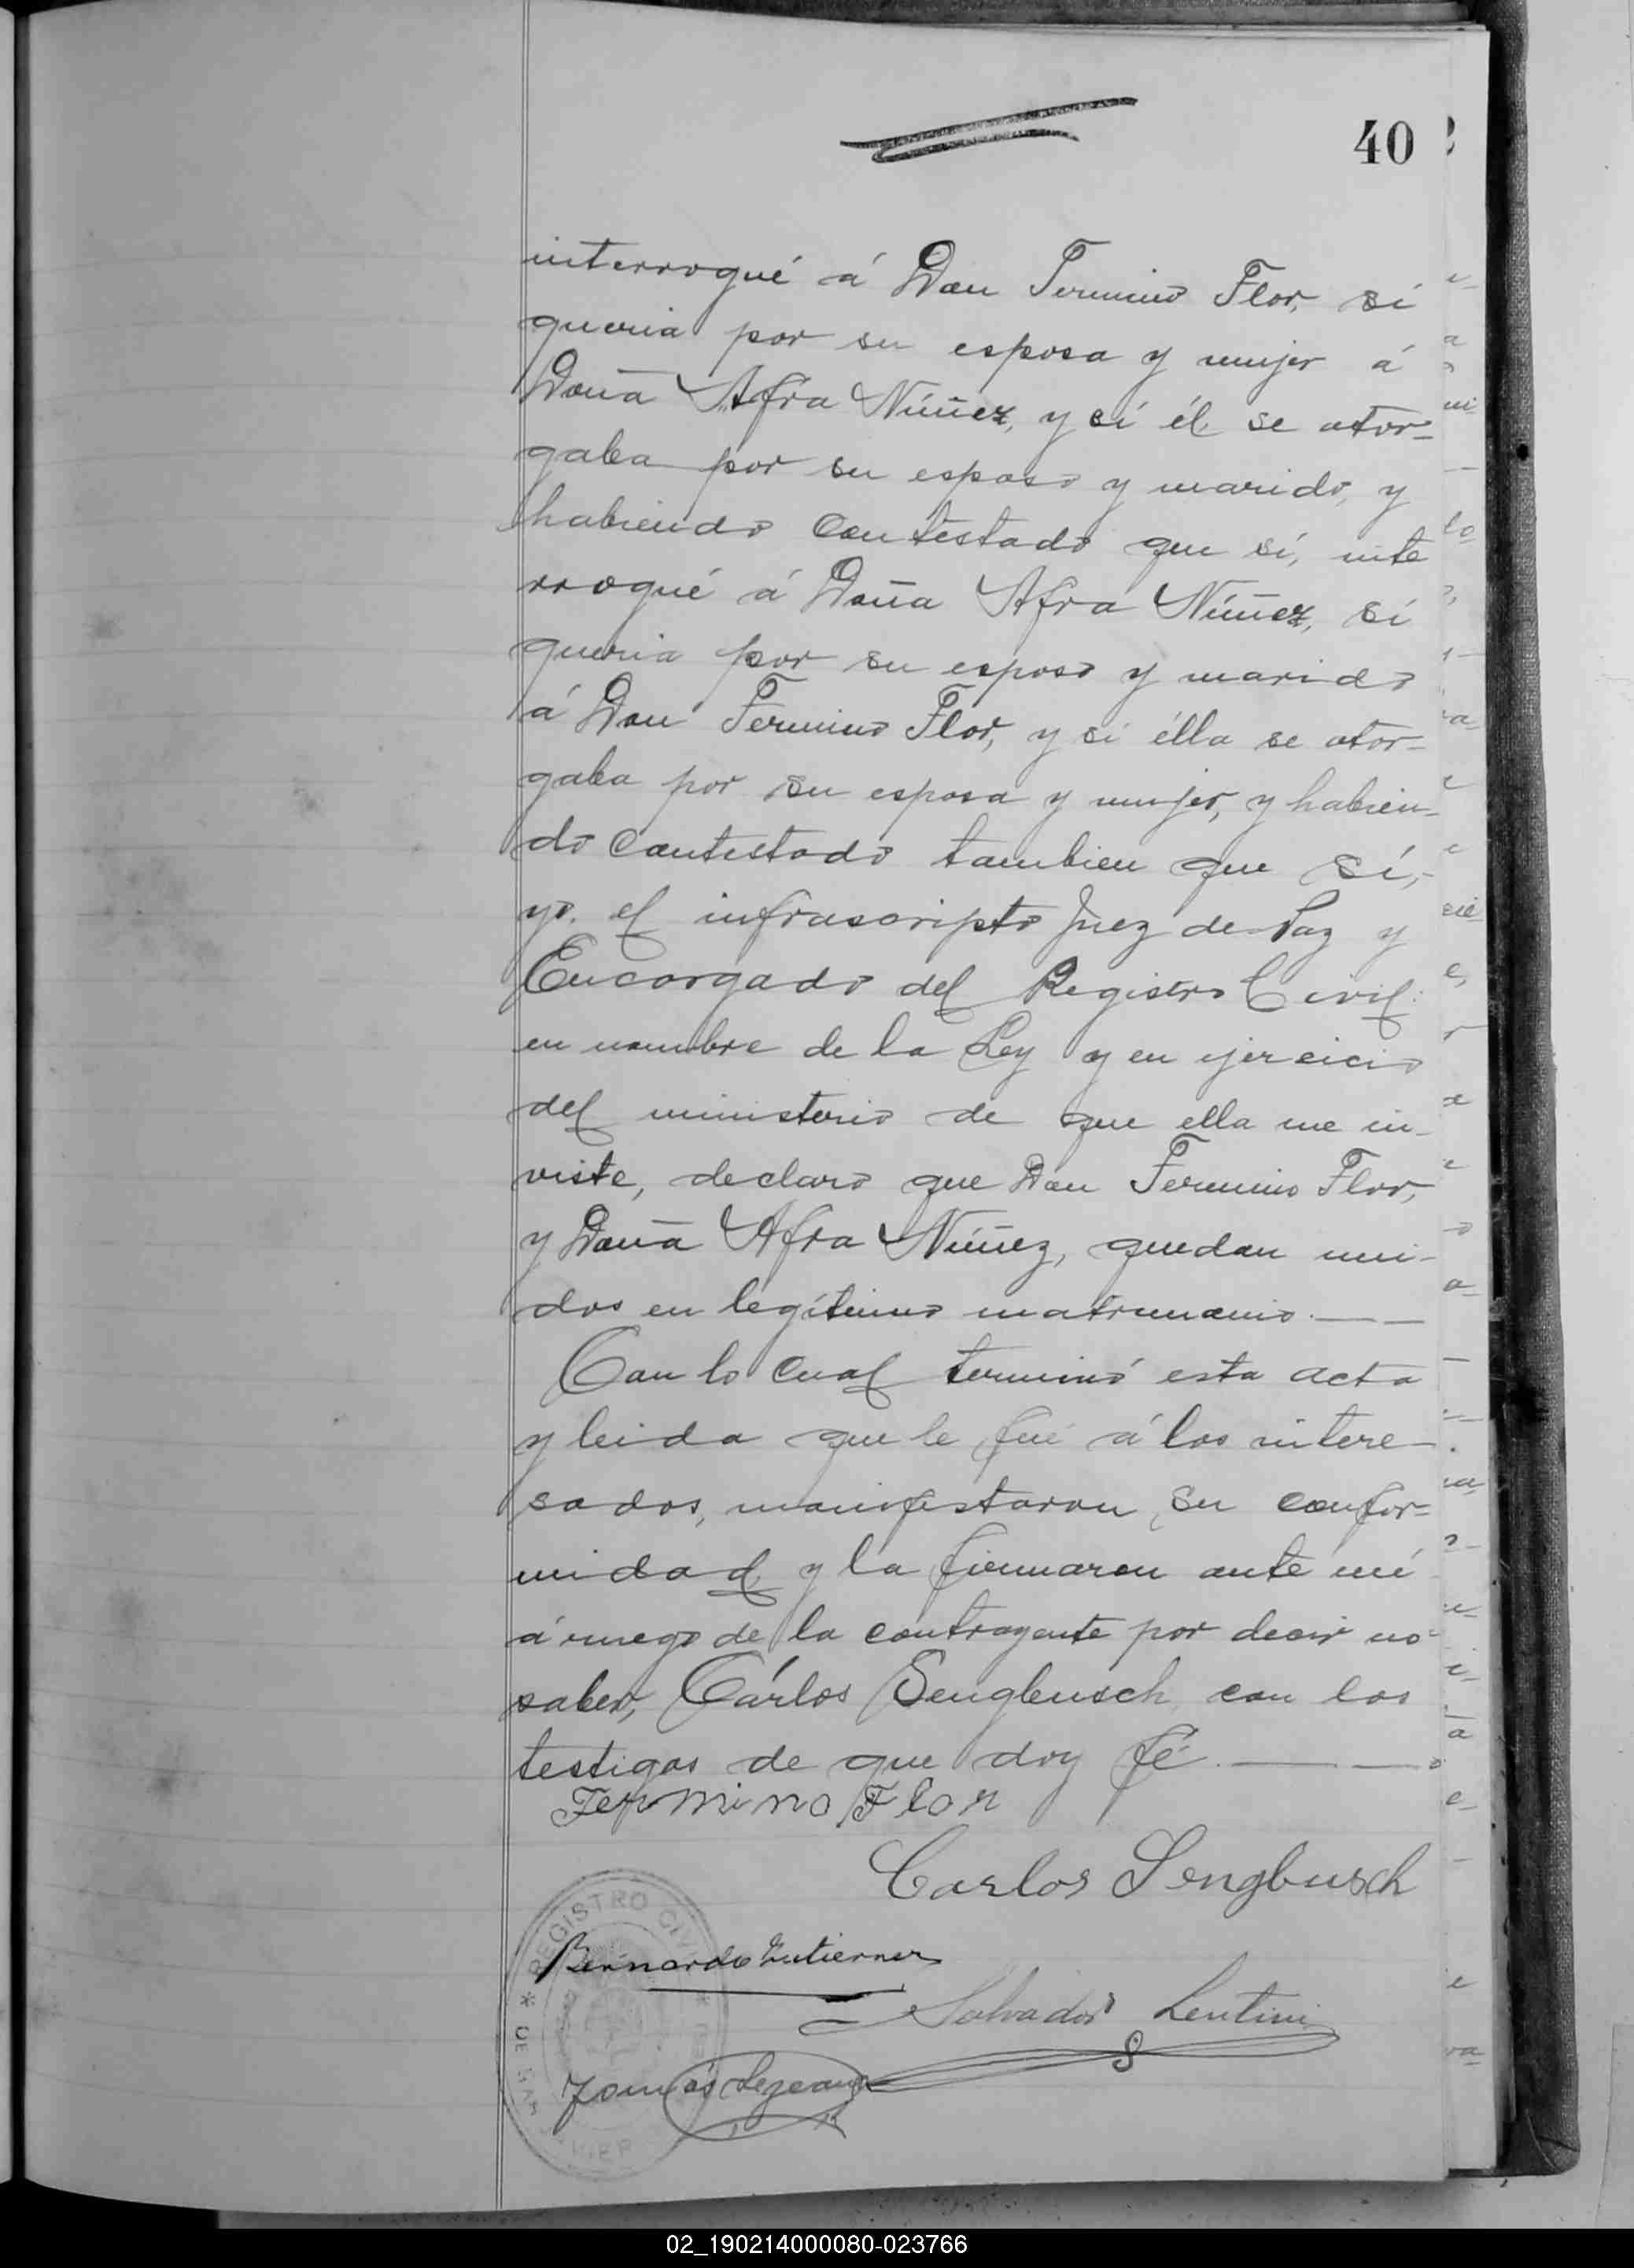 40
interrogué á Don Fermino Flor, sí
queria por su esposa y mujer á
Doña Afra Núñez, y sí él se otor=
gaba por su esposo y marido, y
habiendo contestado que sí, inte
rrogué á Doña Afra Núñez, sí
queria por su esposo y marido
á Don Fermino Flor, y si élla se otor-
gaba por su esposa y mujer, y habien-
do contestado tambien que sí,-
yo, el infrascripto Juez de Paz y
Encargado del Registro Civil:
en nombre de la Ley y en ejercicio
del ministerio de que ella me in-
viste, declaro que Don Fermino Flor,
y Doña Afra Núñez, quedan uni-
dos en legítimo matrimonio.——
Con lo cual terminó esta acta
y leida que le fué á los intere-
sados, manifestaron su confor=
midad y la firmaron ante mí
á ruego de la contrayente por decir no
saber, Cárlos Sengbusch, con los
testigos de que doy fé.——
Fermino Flor
Carlos Sengbusch
Bernardo Gutierrez
Salvador Lentini
Tomás
REGISTRO CIVIL
DE SAN JAVIER
02_190214000080-023766